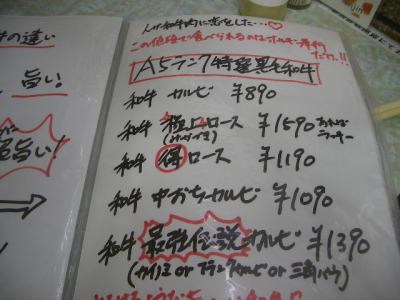 の違い
旨い!
旨い!
この値段で食べられるのはホルモン
だけ..!!
A5ランク特選黒毛和牛
和牛 カルビ ¥890
和牛 極上ロース ¥1590 あればラッキー
(サーロイン)
和牛 得ロース ¥1190
和牛 中おちカルビ ¥1090
和牛 最強伝説カルビ ¥1390
(カイノミ or フランクカルビ or 三角バラ)